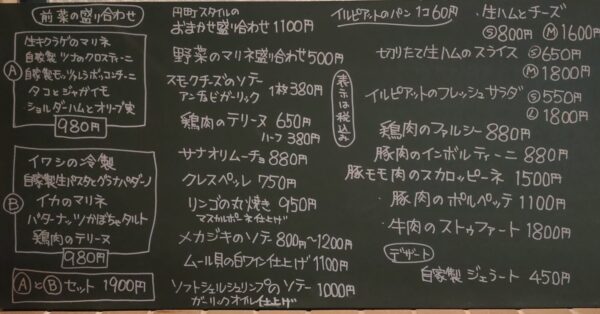 前菜の盛り合わせ
Ⓐ
生キクラゲのマリネ
自家製 ツナのクロスティーニ
自家製モッツァレラボッコンチーニ
タコとジャガイモ
ショルダーハムとオリーブ実
980円
Ⓑ
イワシの冷製
自家製生パスタとグラナパダーノ
イカのマリネ
バターナッツかぼちゃタルト
鶏肉のテリーヌ
980円
ⒶとⒷセット 1900円
円町スタイルの
おまかせ盛り合わせ 1100円
野菜のマリネ盛り合わせ 500円
スモークチーズのソテー
アンチョビガーリック 1枚 380円
鶏肉のテリーヌ 650円
ハーフ 380円
サナオリムーチョ 880円
クレスペッレ 750円
リンゴの丸焼き 950円
マスカルポーネ仕上げ
メカジキのソテー 800円〜1200円
ムール貝の白ワイン仕上げ 1100円
ソフトシェルシュリンプのソテー 1000円
ガーリックオイル仕上げ
表示は税込み
イルピアットのパン 1コ 60円
・生ハムとチーズ
Ⓢ800円 Ⓜ1600円
切りたて/生ハムのスライス Ⓢ650円
Ⓜ1800円
イルピアットのフレッシュサラダ Ⓢ550円
Ⓛ1800円
鶏肉のファルシー 880円
豚肉のインボルティーニ 880円
豚モモ肉のスカロッピーネ 1500円
・豚肉のポルペッテ 1100円
・牛肉のストゥファート 1800円
デザート
自家製 ジェラート 450円